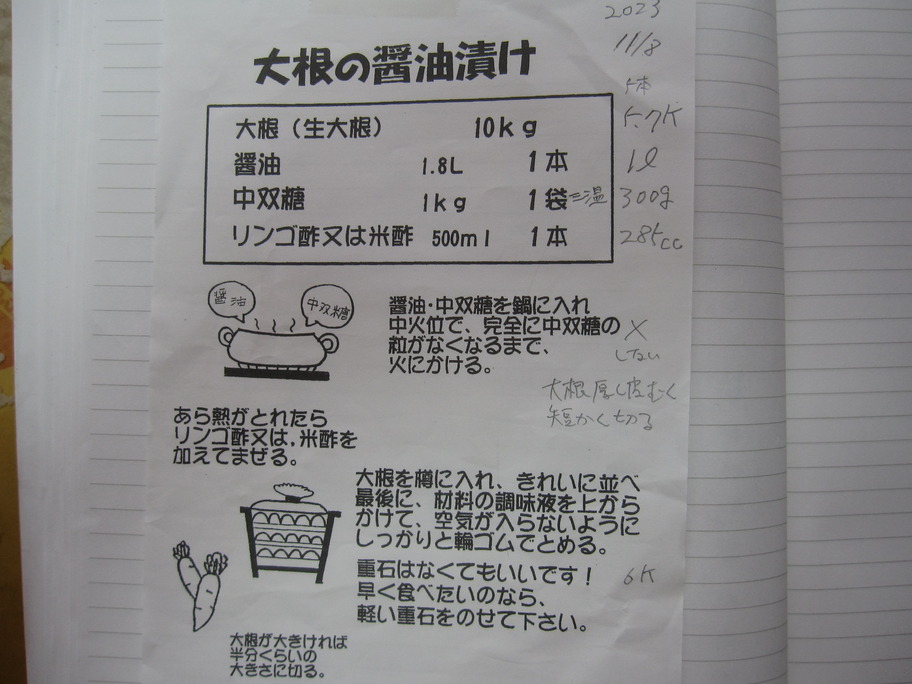 2023
11/8
大根の醤油漬け
5本
大根（生大根） 10kg 5.7K
醤油 1.8L 1本 1ℓ
中双糖 1kg 1袋 =三温 300g
リンゴ酢又は米酢 500ml 1本 285cc
醤油
中双糖
醤油・中双糖を鍋に入れ
中火位で、完全に中双糖の
粒がなくなるまで、
火にかける。
×
しない
大根厚く皮むく
短かく切る
あら熱がとれたら
リンゴ酢又は,米酢を
加えてまぜる。
大根を樽に入れ、きれいに並べ
最後に、材料の調味液を上から
かけて、空気が入らないように
しっかりと輪ゴムでとめる。
重石はなくてもいいです! 6K
早く食べたいのなら、
軽い重石をのせて下さい。
大根が大きければ
半分くらいの
大きさに切る。